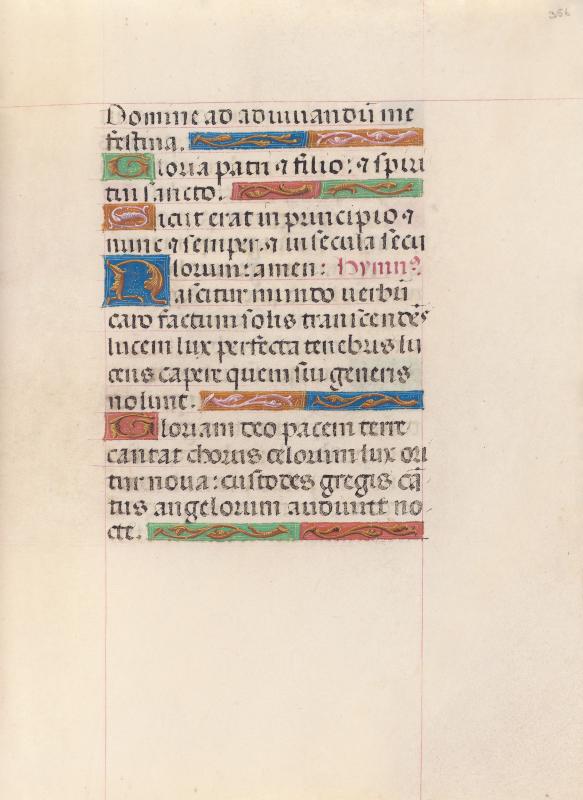 356
Domine ad adiuuandū me
festina.
Gloria patri ⁊ filio: ⁊ spiri
tui sancto.
Sicut erat in principio ⁊
nunc ⁊ semper: ⁊ in secula secu
lorum: amen: Hymnꝰ
Nascitur mundo uerbū
caro factum solis transcendēs
lucem lux perfecta tenebris lu
cens capere quem sui generis
nolunt.
Gloriam deo pacem terre
cantat chorus celorum lux ori
tur noua: custodes gregis cā
tus angelorum audiunt no
cte.